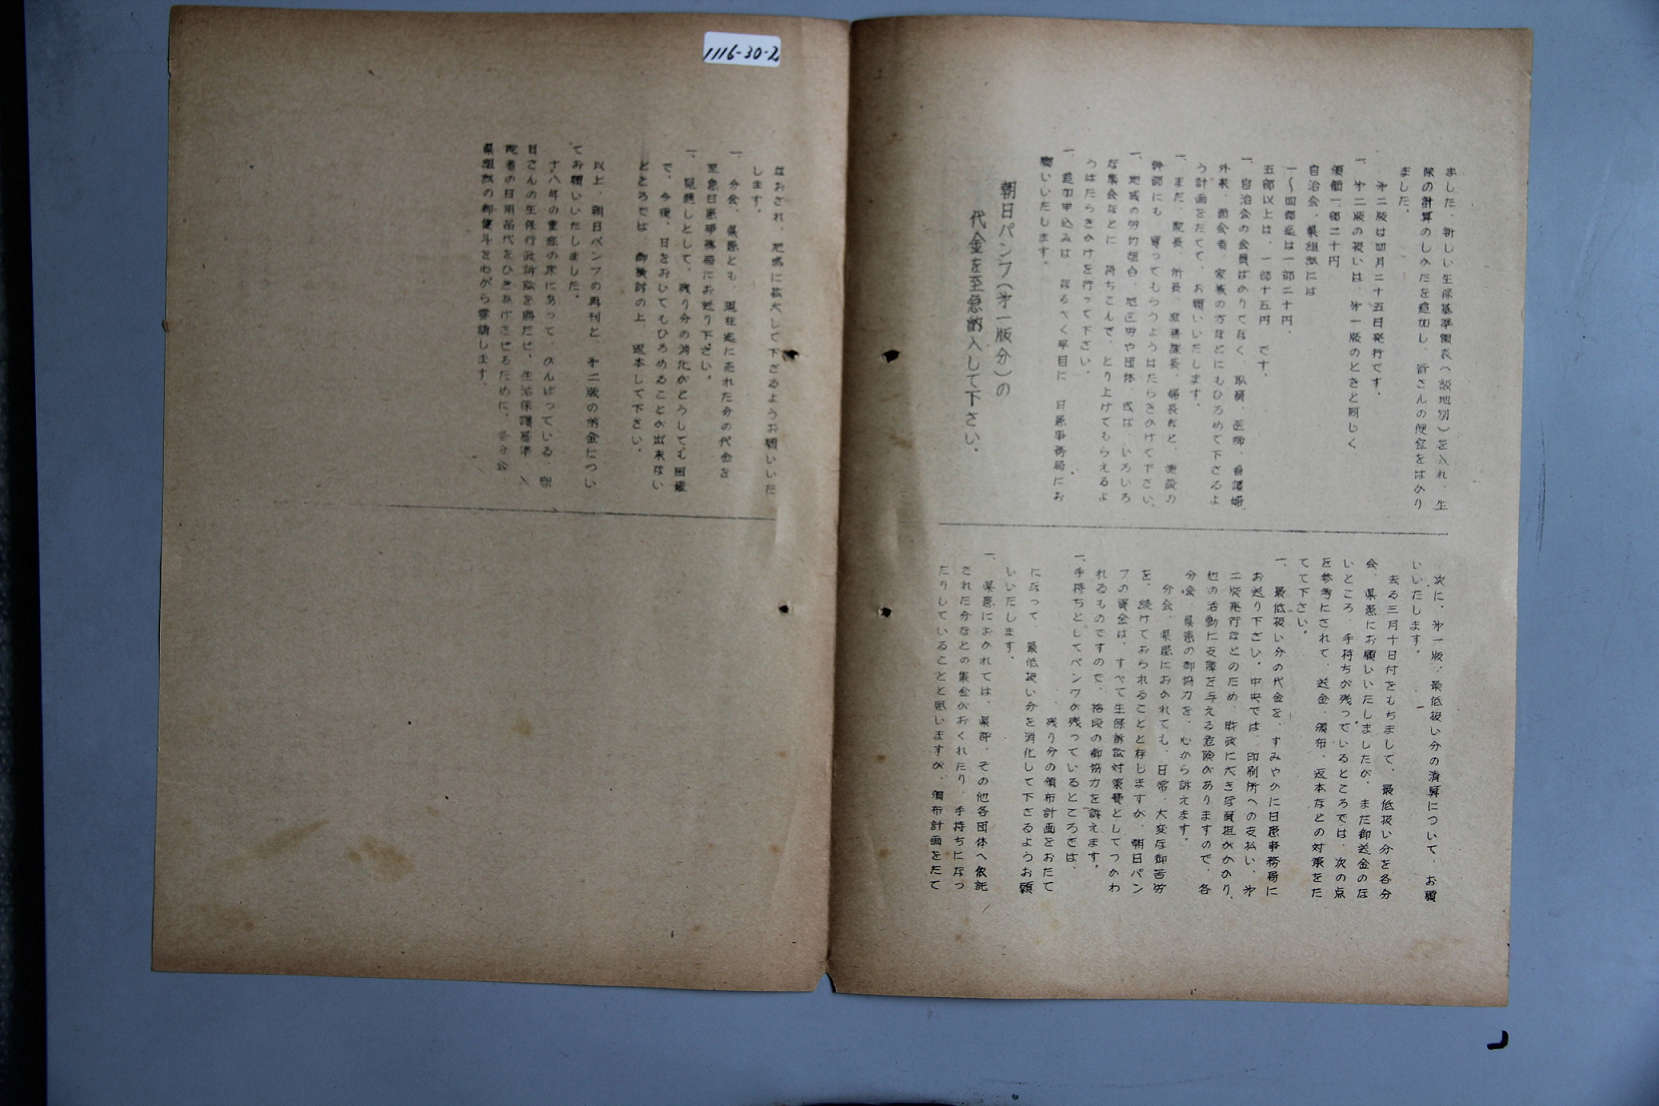 1116-30-2
ました、新しい生保基準額表(級地別)を入れ、生
保の計算のしかたを追加し、皆さんの便宜をはかり
ました。
才二版は四月二十五日発行です。
一、才二版の扱いは、才一版のときと同じく
領価一部二十円
自治会、県組織には
一〜四部迄は一部二十円、
五部以上は、一部十五円 です。
一、自治会の会員ばかりでなく、職員、医師、看護婦、
外来、面会者、家族の方などにもひろめて下さるよ
う計画をたてて、お願いいたします。
一、また、院長、所長、庶務課長、婦長など、施設の
幹部にも、買ってもらうようはたらきかけて下さい。
一、地域の労仂組合、民主団や団体、或は、いろいろ
な集会などに、持ちこんで、とり上げてもらえるよ
うはたらきかけを行って下さい。
一、追加申込みは、なるべく早目に、日患事務局にお
願いいたします。
朝日パンフ(才一版分)の
代金を至急納入して下さい。
次に、才一版、最低扱い分の清算について、お願
いいたします。
去る三月十日付をもちまして、最低扱い分を各分
会、県患にお願いいたしましたが、まだ御送金のな
いところ、手持ちが残っているところでは、次の点
を参考にされて、送金、頒布、返本などの対策をた
てて下さい。
一、最低扱い分の代金を、すみやかに日患事務局に
お送り下さい。中央では、印刷所への支払い、才
二版発行などのため、財政に大きな負担がかかり、
他の活動に支障を与える危険がありますので、各
分会、県患の御協力を、心から訴えます。
分会、県患におかれても、日常、大変な御苦労
を、続けておられることと存じますが、朝日パン
フの資金は、すべて生保訴訟対策費としてつかわ
れるものですので、格段の御協力を訴えます。
一、手持ちとしてパンフが残っているところでは、
残り分の頒布計画をおたて
になって、最低扱い分を消化して下さるようお願
いいたします。
一、県患におかれては、県評、その他各団体へ依託
された分などの集金がおくれたり、手持ちになっ
たりしていることと思いますが、頒布計画をたて
なおされ、地域に拡大して下さるようお願いいた
します。
一、分会、県患とも、現在迄に売れた分の代金を
至急日患事務局にお送り下さい。
一、見通しとして、残り分の消化がどうしても困難
で、今後、日をおいてもひろめることが出来ない
ところでは、御検討の上、返本して下さい。
以上、朝日パンフの再刊と、才二版の納金につい
てお願いいたしました。
十八年の重症の床にあって、がんばっている、朝
日さんの生保行政訴訟を勝たせ、生活保護基準、入
院者の日用品代をひき上げさせるために、各分会、
県組織の御健斗を心から要請します。